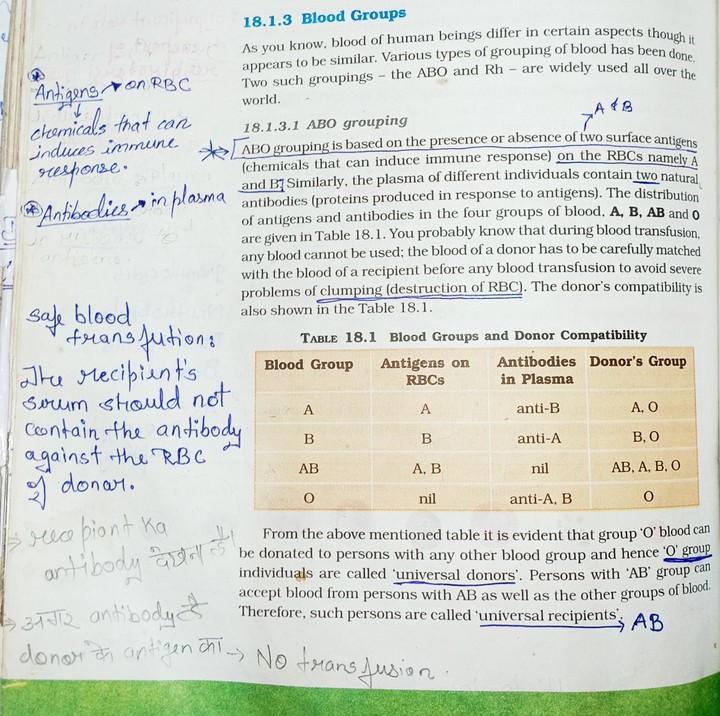 18.1.3 Blood Groups
As you know, blood of human beings differ in certain aspects though it
appears to be similar. Various types of grouping of blood has been done.
Two such groupings – the ABO and Rh – are widely used all over the
world.
A & B
18.1.3.1 ABO grouping
ABO grouping is based on the presence or absence of two surface antigens
(chemicals that can induce immune response) on the RBCs namely A
and B. Similarly, the plasma of different individuals contain two natural
antibodies (proteins produced in response to antigens). The distribution
of antigens and antibodies in the four groups of blood, A, B, AB and O
are given in Table 18.1. You probably know that during blood transfusion,
any blood cannot be used; the blood of a donor has to be carefully matched
with the blood of a recipient before any blood transfusion to avoid severe
problems of clumping (destruction of RBC). The donor's compatibility is
also shown in the Table 18.1.
Antigens → on RBC
↓
chemicals that can
induces immune
response.
Antibodies → in plasma
safe blood
transfution:
The recipient's
serum should not
contain the antibody
against the RBC
of donar.
TABLE 18.1 Blood Groups and Donor Compatibility
Blood Group Antigens on RBCs Antibodies in Plasma Donor's Group
A A anti-B A, O
B B anti-A B, O
AB A, B nil AB, A, B, O
O nil anti-A, B O
From the above mentioned table it is evident that group 'O' blood can
be donated to persons with any other blood group and hence 'O' group
individuals are called 'universal donors'. Persons with 'AB' group can
accept blood from persons with AB as well as the other groups of blood.
Therefore, such persons are called 'universal recipients'.
→ AB
→ recepiant ka
antibody देखना है।
→ अगर antibody है
donor के antigen का → No transfusion.